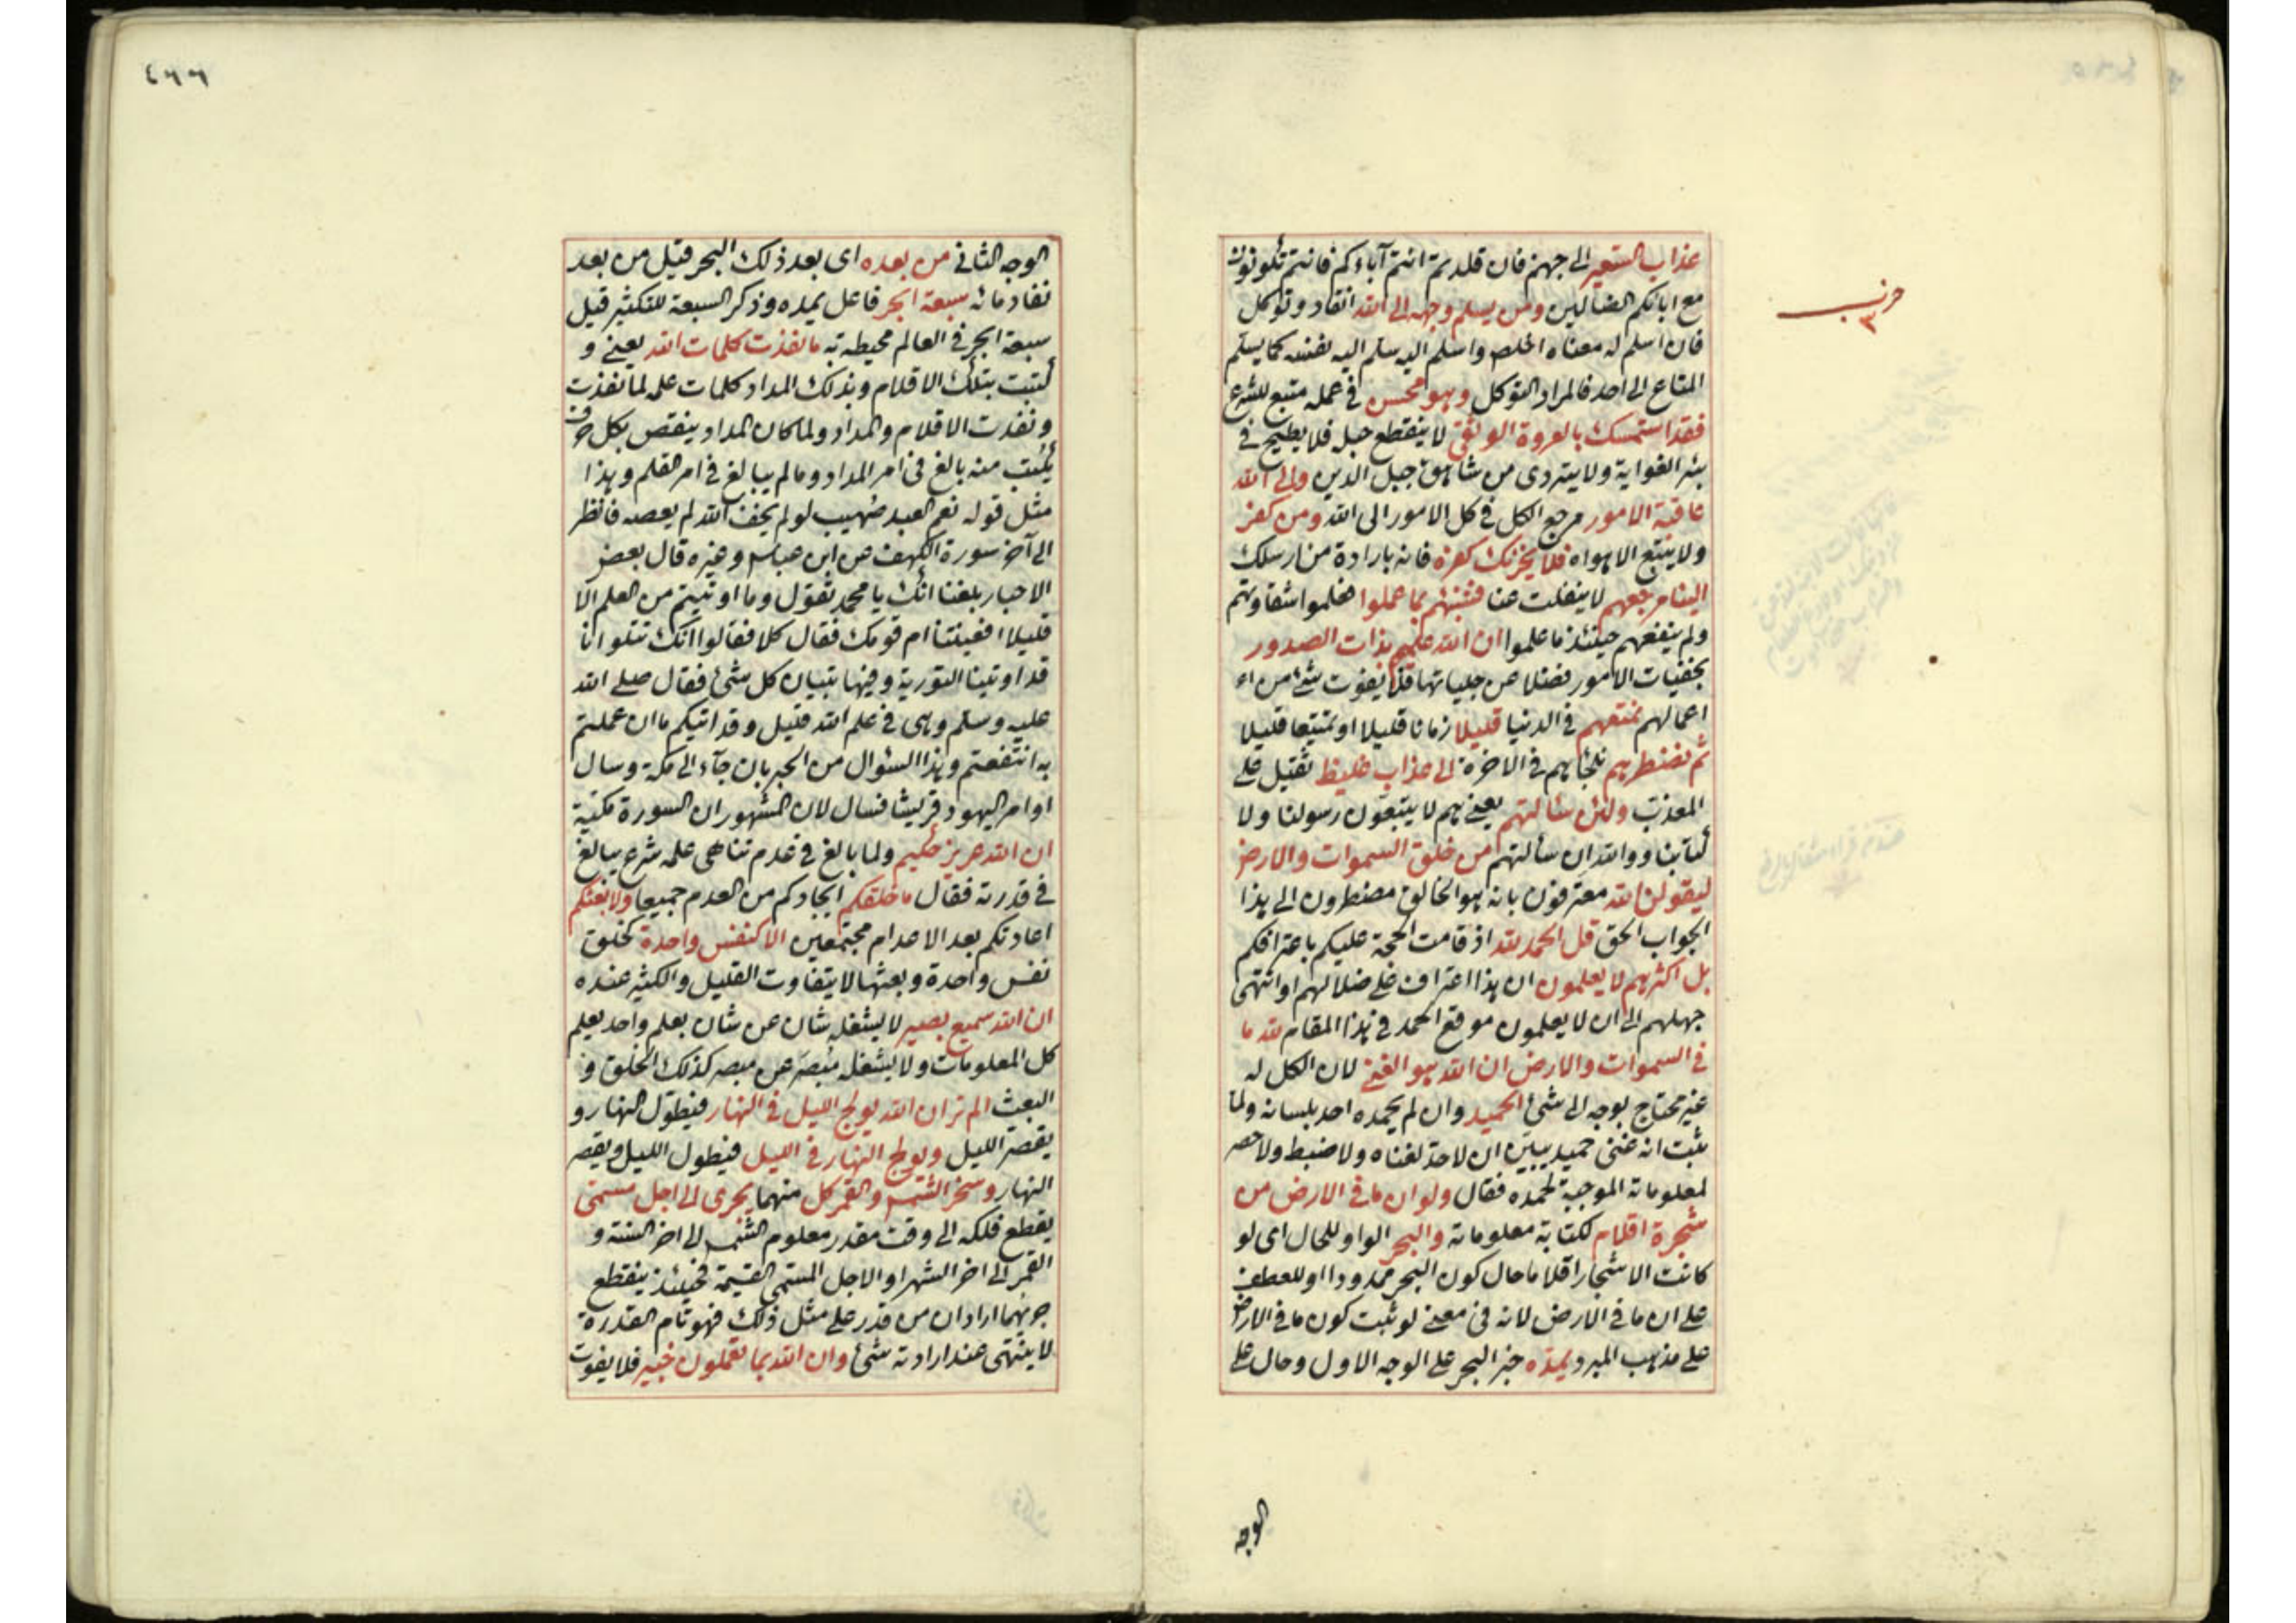 عذاب السعير الى جهنم فان قلدتم انتم آباءكم فانتم تكونون
مع ابائكم الضالين ومن يسلم وجهه الى الله انقاد وتوكل
حزب
٣
فان اسلم له معناه اخلص واسلم اليه سلم اليه نفسه كما يسلم
المتاع الى احد فالمراد التوكل وهو محسن في عمله متبع للشرع
فقد استمسك بالعروة الوثقى لا ينقطع حبله فلا يطيح في
بئر الغواية ولا يتردى من شاهق جبل الدين والى الله
عاقبة الامور مرجع الكل في كل الامور الى الله ومن كفر
ولا يتبع الا هواه فلا يحزنك كفره فانه بارادة من ارسلك
الينا مرجعهم لا ينفلت عنا فننبئهم بما عملوا فعلموا شقاوتهم
ولم ينفعهم حينئذ ما علموا ان الله عليم بذات الصدور
بخفيات الامور فضلا عن جلياتها فلا يفوت شئ من اء
اعمالهم نمتعهم في الدنيا قليلا زمانا قليلا او تمتيعا قليلا
ثم نضطرهم نلجئهم في الاخرة الى عذاب غليظ ثقيل على
المعذب ولئن سألتهم يعني هم لا يتبعون رسولنا ولا
كتابنا ووالله ان سألتهم من خلق السموات والارض
ليقولن الله معترفون بانه هو الخالق مضطرون الى هذا
الجواب الحق قل الحمد لله اذ قامت الحجة عليكم باعترافكم
بل اكثرهم لا يعلمون ان هذا اعتراف على ضلالهم او انتهى
جهلهم الى ان لا يعلمون موقع الحمد في هذا المقام لله ما
في السموات والارض ان الله هو الغني لان الكل له
غير محتاج بوجه الى شئ الحميد وان لم يحمده احد بلسانه ولما
ثبت انه غني حميد يبين ان لا حد لغناه ولا ضبط ولا حصر
لمعلوماته الموجبة لحمده فقال ولو ان ما في الارض من
شجرة اقلام لكتابة معلوماته والبحر الواو للحال اى لو
كانت الاشجار اقلاما حال كون البحر ممدودا او للعطف
على ان ما في الارض لانه في معنى لو ثبت كون ما في الارض
على مذهب المبرد يمده خبر البحر على الوجه الاول وحال على
الوجه
٤٦٦
الوجه الثاني من بعده اى بعد ذلك البحر قيل من بعد
نفاد مائه سبعة ابحر فاعل يمده وذكر السبعة للتكثير قيل
سبعة ابحر في العالم محيطه به ما نفدت كلمات الله يعني و
كتبت بتلك الاقلام وبذلك المداد كلمات علمه لما نفدت
ونفدت الاقلام والمداد ولما كان المداد ينقص بكل حرف
يكتب منه بالغ في امر المداد وما لم يبالغ في امر القلم وهذا
مثل قوله نعم العبد صهيب لو لم يخف الله لم يعصه فانظر
الى آخر سورة الكهف عن ابن عباس وغيره قال بعض
الاحبار بلغنا انك يا محمد تقول وما اوتيتم من العلم الا
قليلا افعنيتنا ام قومك فقال كلا فقالوا انك تتلو انا
قد اوتينا التورية وفيها تبيان كل شئ فقال صلى الله
عليه وسلم وهى في علم الله قليل وقد اتيكم ما ان عملتم
به انتفعتم وهذا السئوال من الحبر بان جاء الى مكة وسال
او امر اليهود قريشا فسال لان المشهور ان السورة مكية
ان الله عزيز حكيم ولما بالغ في عدم تناهى علمه شرع يبالغ
في قدرته فقال ما خلقكم ايجادكم من العدم جميعا ولا بعثكم
اعادتكم بعد الاعدام مجتمعين الا كنفس واحدة كخلق
نفس واحدة وبعثها لا يتفاوت القليل والكثير عنده
ان الله سميع بصير لا يشغله شان عن شان بعلم واحد يعلم
كل المعلومات ولا يشغله مبصر عن مبصر كذلك الخلق و
البعث الم تر ان الله يولج الليل في النهار فيطول النهار و
يقصر الليل ويولج النهار في الليل فيطول الليل ويقصر
النهار وسخر الشمس والقمر كل منهما يجرى الى اجل مسمى
يقطع فلكه الى وقت مقدر معلوم الشمس الى اخر السنة و
القمر الى اخر الشهر او الاجل المسمى القيمة فحينئذ ينقطع
جريهما اراد ان من قدر على مثل ذلك فهو تام القدرة
لا ينتهى عند ارادته شئ وان الله بما تعملون خبير فلا يفوت